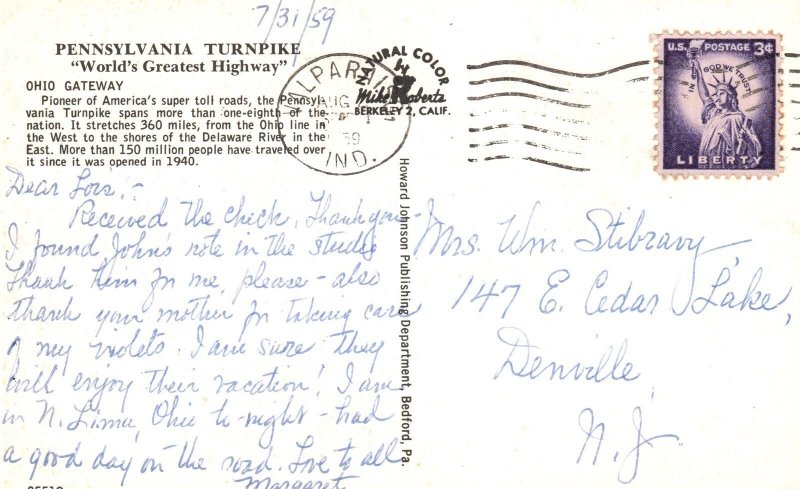 7/31/59
PENNSYLVANIA TURNPIKE
"World's Greatest Highway"
OHIO GATEWAY
Pioneer of America's super toll roads, the Pennsyl-
vania Turnpike spans more than one-eighth of the
nation. It stretches 360 miles, from the Ohio line in
the West to the shores of the Delaware River in the
East. More than 150 million people have traveled over
it since it was opened in 1940.
ALPARAI
AUG
1
59
IND.
NATURAL COLOR
by
Mike Roberts
BERKELEY 2, CALIF.
U.S. POSTAGE 3¢
IN GOD WE TRUST
LIBERTY
Dear Lois,-
Received the check, Thank you-
I found John's note in the studio
Thank him for me, please - also
thank your mother for taking care
of my violets. I am sure they
will enjoy their vacation! I am
in N. Lima, Ohio to-night - had
a good day on the road. Love to all
Margaret
Howard Johnson Publishing Department, Bedford, Pa.
Mrs. Wm. Stibravy,
147 E. Cedar Lake,
Denville,
N. J.